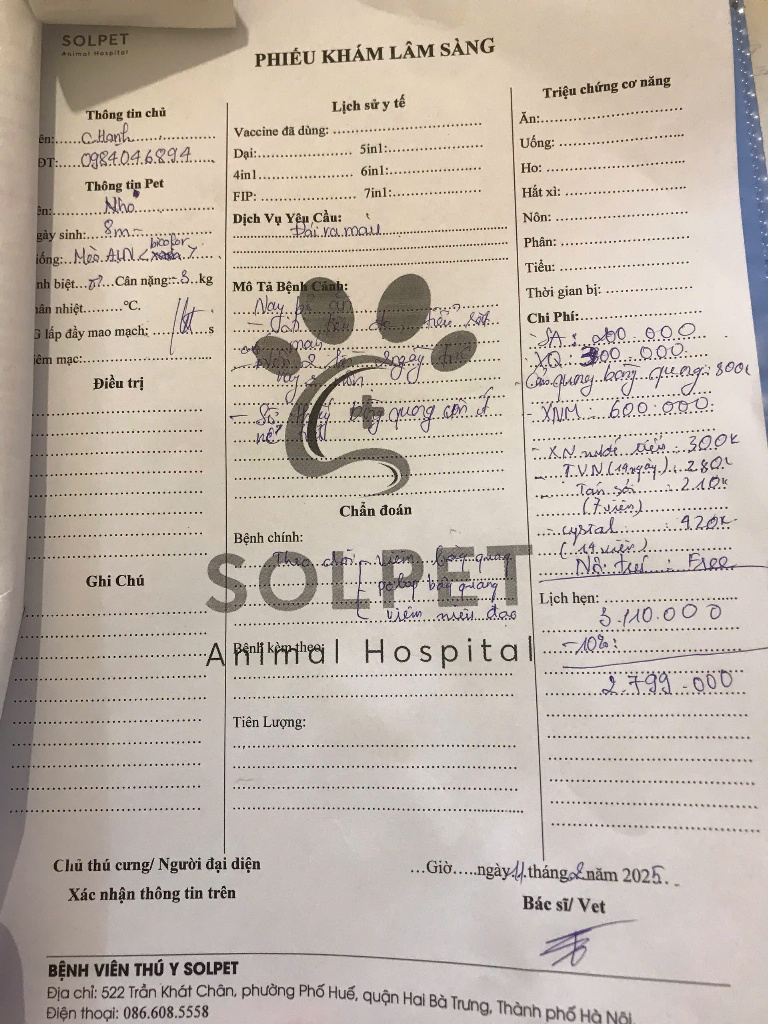 SOLPET
Animal Hospital
PHIẾU KHÁM LÂM SÀNG
Thông tin chủ
ên: C Hạnh
ĐT: 0984046894
Thông tin Pet
ên: Nhỏ
gày sinh: 8m
iống: Mèo ALN bicolor
nh biệt: ♂ Cân nặng: 3 kg
ân nhiệt: °C.
G lấp đầy mao mạch: s
iêm mạc:
Điều trị
Ghi Chú
Lịch sử y tế
Vaccine đã dùng:
Dại: 5in1:
4in1 6in1:
FIP: 7in1:
Dịch Vụ Yêu Cầu:
Đái ra máu
Mô Tả Bệnh Cảnh:
Nay
máu
2 ngày
bàng quang còn ít
Chẩn đoán
Bệnh chính:
Theo dõi - viêm bàng quang
polyp bàng quang
viêm niệu đạo
SOLPET
Animal Hospital
Bệnh kèm theo:
Tiên Lượng:
Triệu chứng cơ năng
Ăn:
Uống:
Ho:
Hắt xì:
Nôn:
Phân:
Tiểu:
Thời gian bị:
Chi Phí:
- SA: 200 000
XQ: 300 000
quang bàng quang: 800k
- XNM: 600.000
- XN nước tiểu: 300k
- T.V.N (14 ngày): 280k
- Tán sỏi: 210k
(7 viên)
- cystal: 420k
(14 viên)
: Free
Lịch hẹn:
3.110.000
-10%:
2.799.000
Chủ thú cưng/ Người đại diện
Xác nhận thông tin trên
...Giờ.....ngày 11 tháng 2 năm 2025
Bác sĩ/ Vet
BỆNH VIÊN THÚ Y SOLPET
Địa chỉ: 522 Trần Khát Chân, phường Phố Huế, quận Hai Bà Trưng, Thành phố Hà Nội.
Điện thoại: 086.608.5558